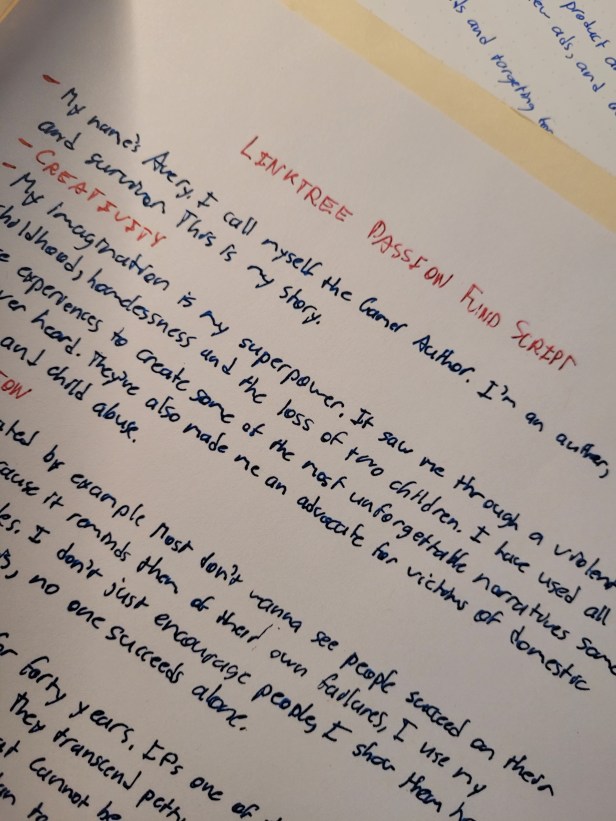 product a
ew ads, and
ds and targeting for
LINKTREE PASSION FUND SCRIPT
- My name's Avery. I call myself the Gamer Author. I'm an author,
and survivor. This is my story.
- CREATIVITY
- My imagination is my superpower. It saw me through a violent
childhood, homelessness and the loss of two children. I have used all
experiences to create some of the most unforgettable narratives some
ver heard. They've also made me an advocate for victims of domestic
and child abuse.
ated by example Most don't wanna see people succeed on their
cause it reminds them of their own failures, I use my
les. I don't just encourage people, I show them
no one succeeds alone.
for forty years. one of
they transcend
at cannot be
to